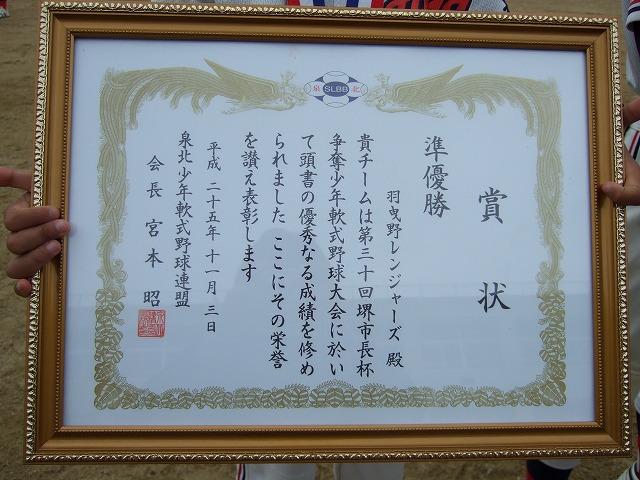 泉 SLBB 北
賞状
準優勝
羽曳野レンジャーズ 殿
貴チームは第三十回堺市長杯
争奪少年軟式野球大会に於い
て頭書の優秀なる成績を修め
られました ここにその栄誉
を讃え表彰します
平成 二十五年 十一月 三日
泉北少年軟式野球連盟
会長 宮本 昭